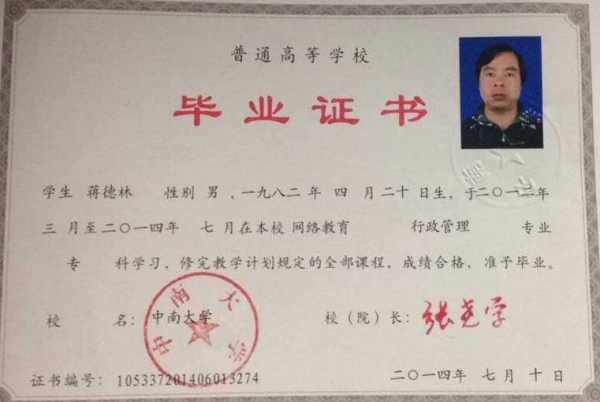 普通高等学校
毕业证书
学生 蒋德林 性别 男 , 一九八二年 四 月 二十 日生, 于二〇一二年
三 月至二〇一四年 七 月在本校 网络教育 行政管理 专业
专 科学习, 修完教学计划规定的全部课程, 成绩合格, 准予毕业。
校 名: 中南大学 校（院）长: 张尧学
中南大学
证书编号: 105337201406013274 二〇一四年 七 月 十 日